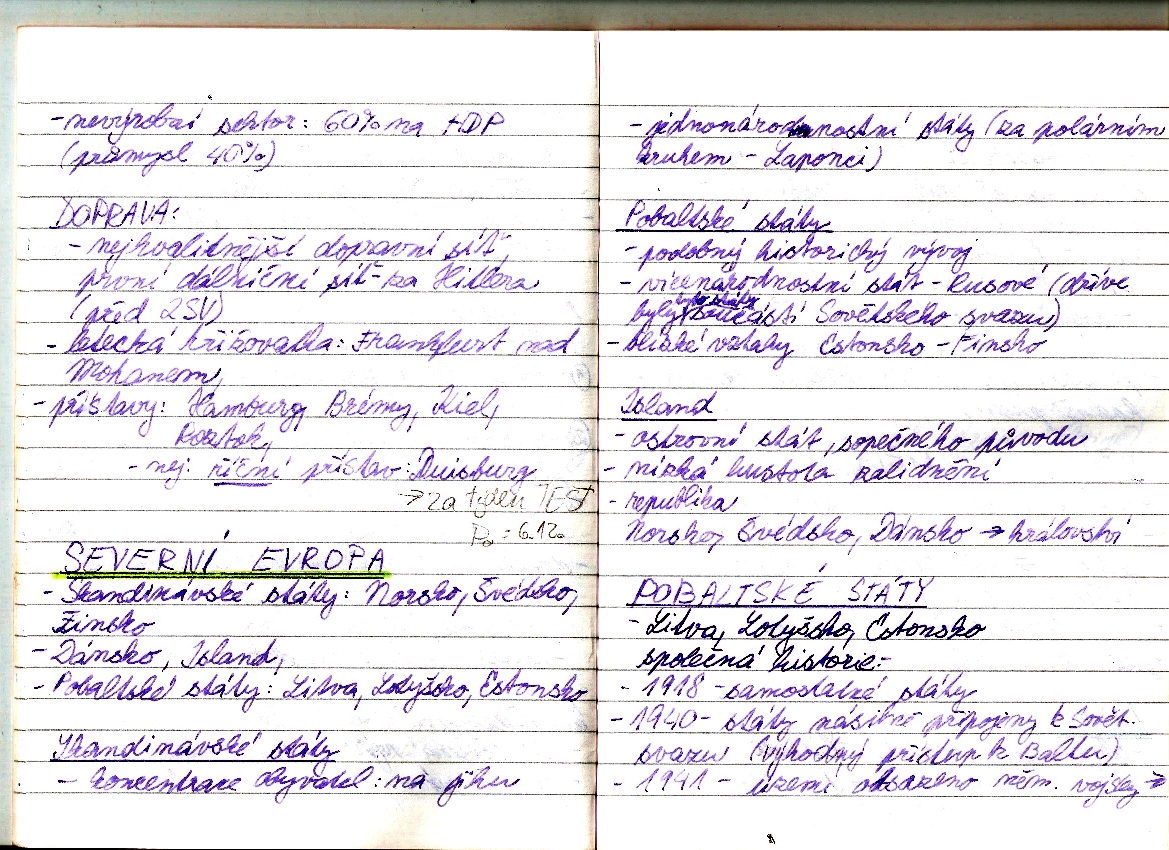 - nevýrobní sektor: 60% na HDP
(průmysl 40%)
DOPRAVA:
- nejkvalitnější dopravní síť,
první dálniční síť za Hitlera
(před 2SV)
- letecká křižovatka: Frankfurt nad
Mohanem
- přístavy: Hamburg, Brémy, Kiel,
Rostok,
- nej. říční přístav: Duisburg
→ za týden TEST
Po = 6.12.
SEVERNÍ EVROPA
- Skandinávské státy: Norsko, Švédsko,
Finsko
- Dánsko, Island,
- Pobaltské státy: Litva, Lotyšsko, Estonsko
Skandinávské státy
- koncentrace obyvatel: na jihu
- jednonárodnostní státy (za polárním
kruhem - Laponci)
Pobaltské státy
- podobný historický vývoj
- vícenárodnostní stát - Rusové (dříve
byly tyto státy součástí Sovětského svazu)
- blízké vztahy Estonsko - Finsko
Island
- ostrovní stát, sopečného původu
- nízká hustota zalidnění
- republika
Norsko, Švédsko, Dánsko → království
POBALTSKÉ STÁTY
- Litva, Lotyšsko, Estonsko
společná historie:-
- 1918 - samostatné státy
- 1940 - státy násilně připojeny k Sovět.
svazu (výhodný přístup k Baltu)
- 1941 - území obsazeno něm. vojsky →